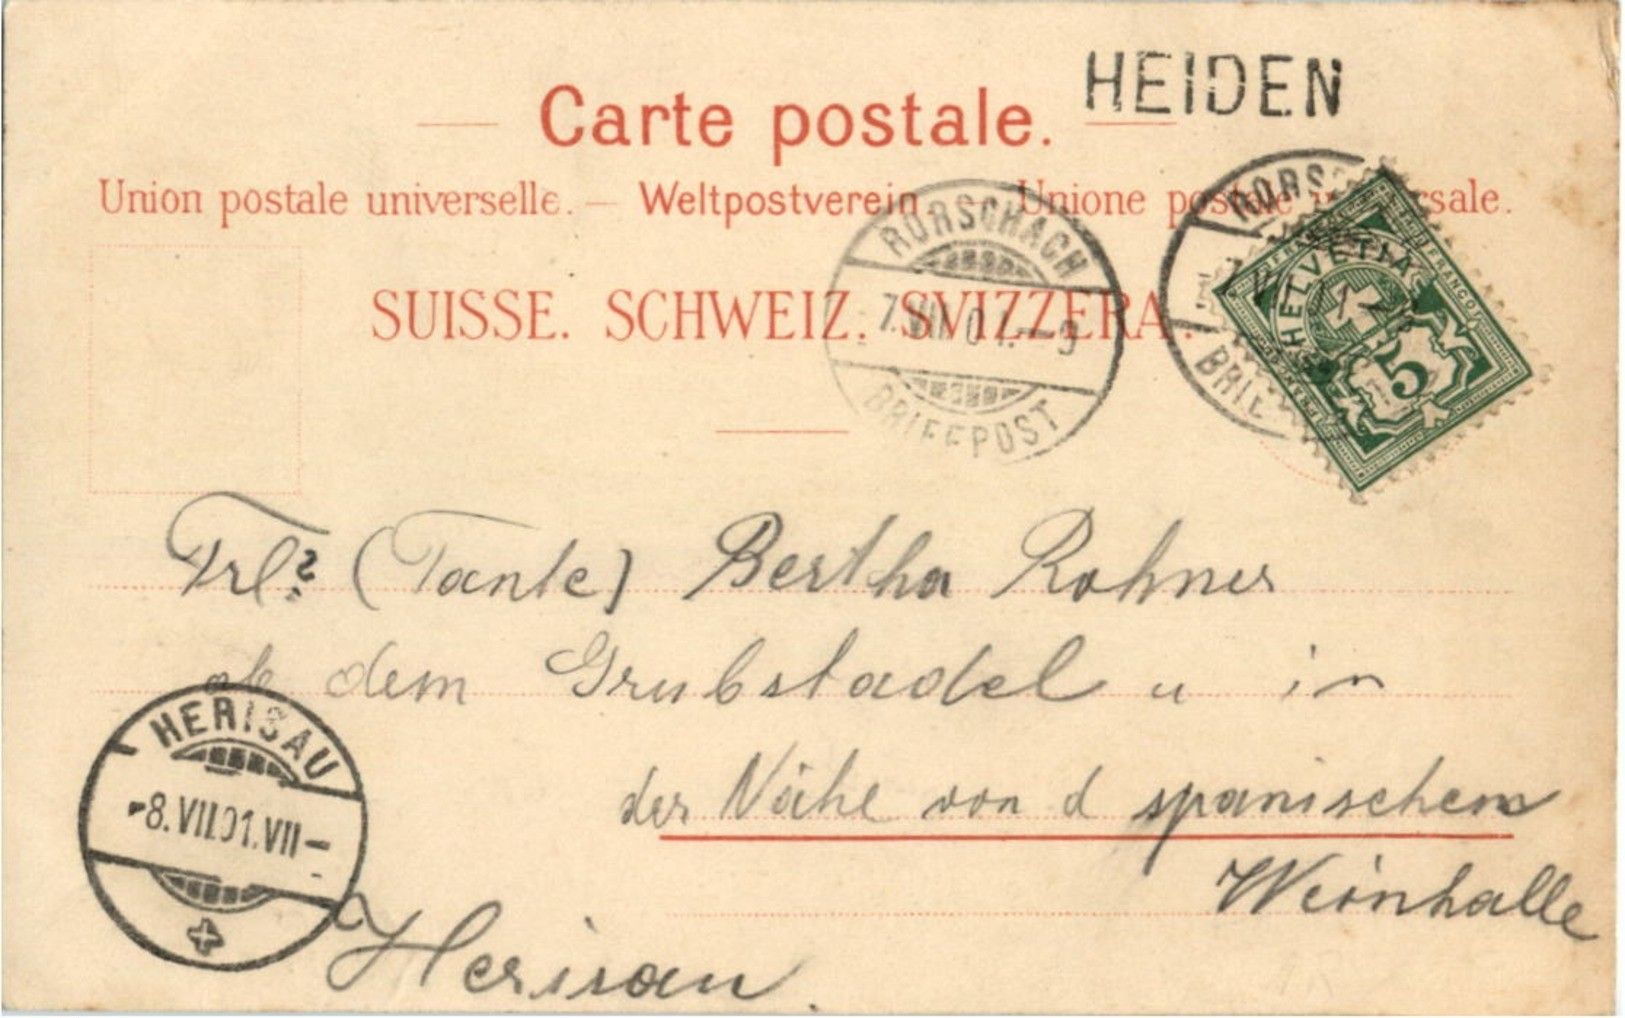 HEIDEN
Carte postale.
Union postale universelle. — Weltpostverein — Unione postale universale.
RORSCHACH
7.VII.01.—9
BRIEFPOST
RORS
BRIE
FRANCO
HELVETIA
5
SUISSE. SCHWEIZ. SVIZZERA.
Frl. (Tante) Bertha Rohner
ob dem Grubstadel u in
der Nähe von d spanischen
Weinhalle
HERISAU
-8.VII.01.VII-
Herisau.